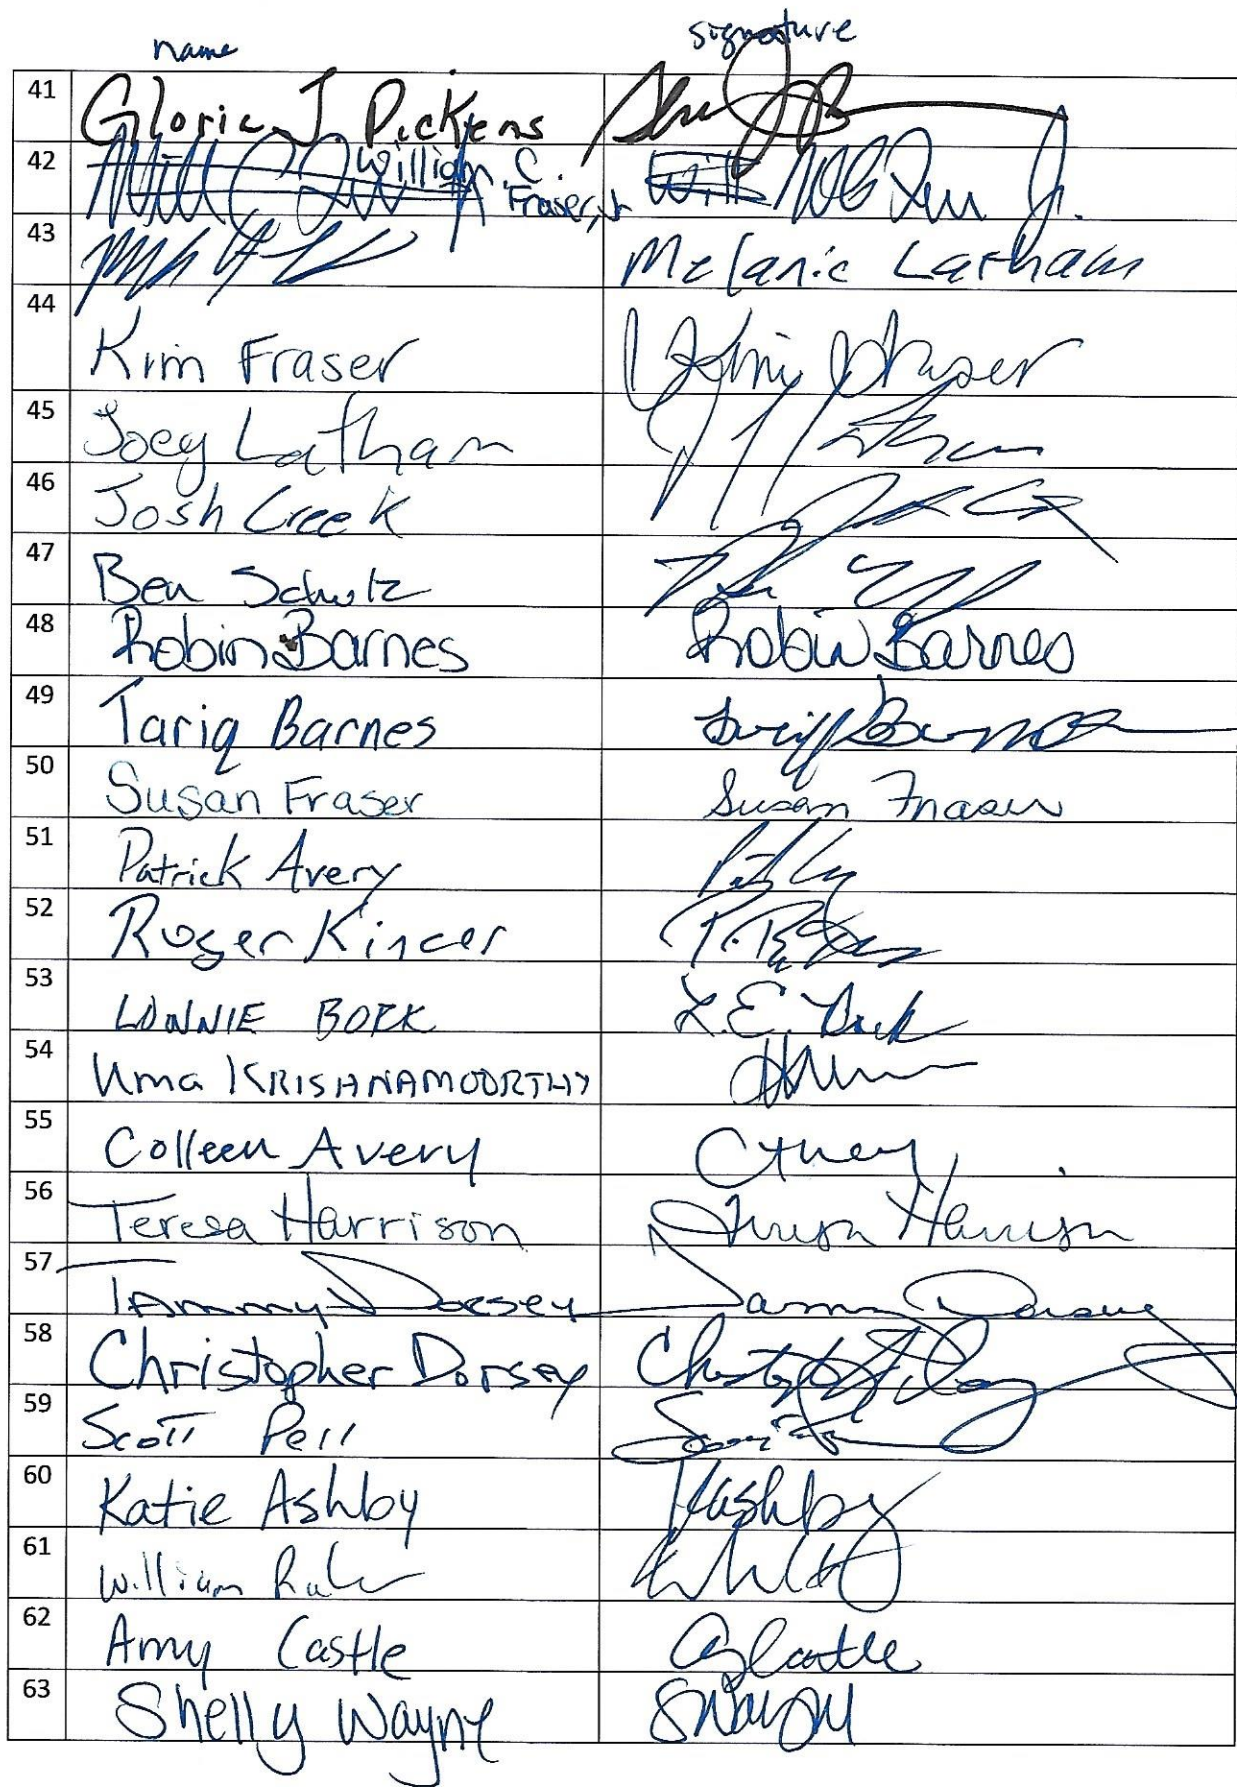 name signature
41 Gloria J. Pickens
42 William C. Fraser, Jr Will
43 Melanie Latham
44 Kim Fraser Kim Fraser
45 Joey Latham
46 Josh Creek
47 Ben Schutz
48 Robin Barnes Robin Barnes
49 Tariq Barnes
50 Susan Fraser Susan Fraser
51 Patrick Avery
52 Roger Kincer
53 LONNIE BORK L.E. Bork
54 Uma KRISHNAMOORTHY
55 Colleen Avery
56 Teresa Harrison Teresa Harrison
57 Tammy Dorsey Tammy Dorsey
58 Christopher Dorsey
59 Scott Pell
60 Katie Ashby KAshby
61 William
62 Amy Castle
63 Shelly Wayne SWayne